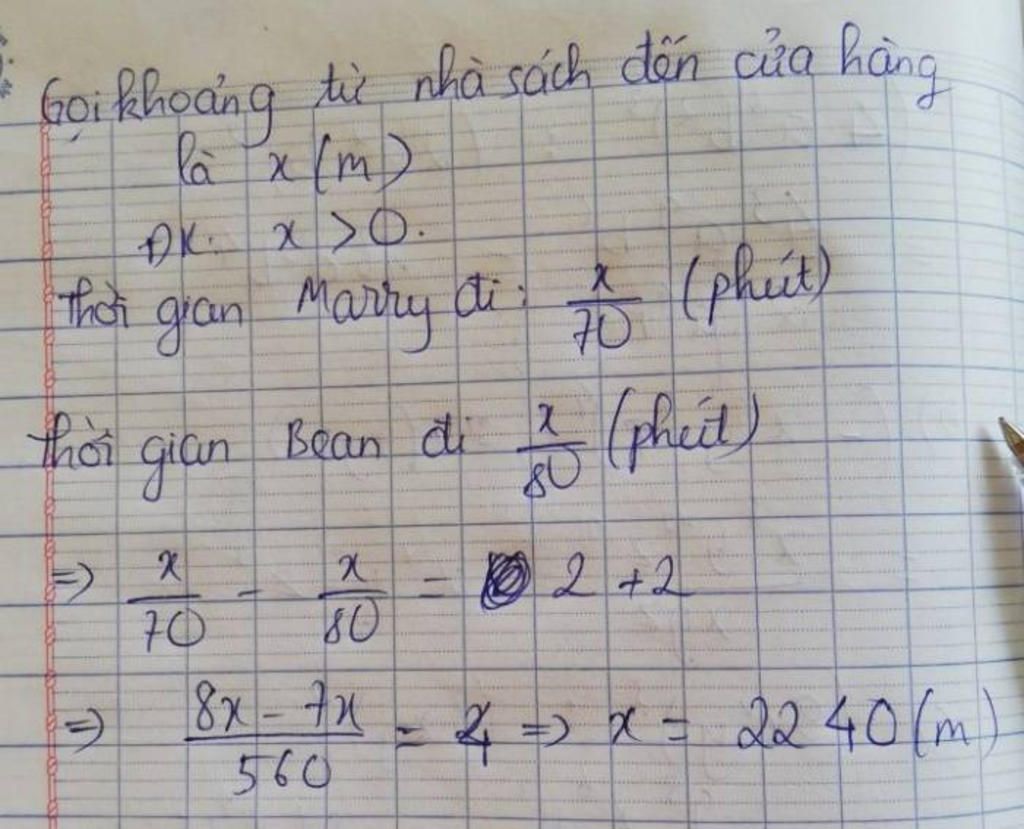 Gọi khoảng từ nhà sách đến cửa hàng
là x (m)
ĐK: x > 0.
Thời gian Marry đi: x/70 (phút)
Thời gian Bean đi x/80 (phút)
=> x/70 - x/80 = 2 + 2
=> (8x - 7x)/560 = 4 => x = 2240 (m)